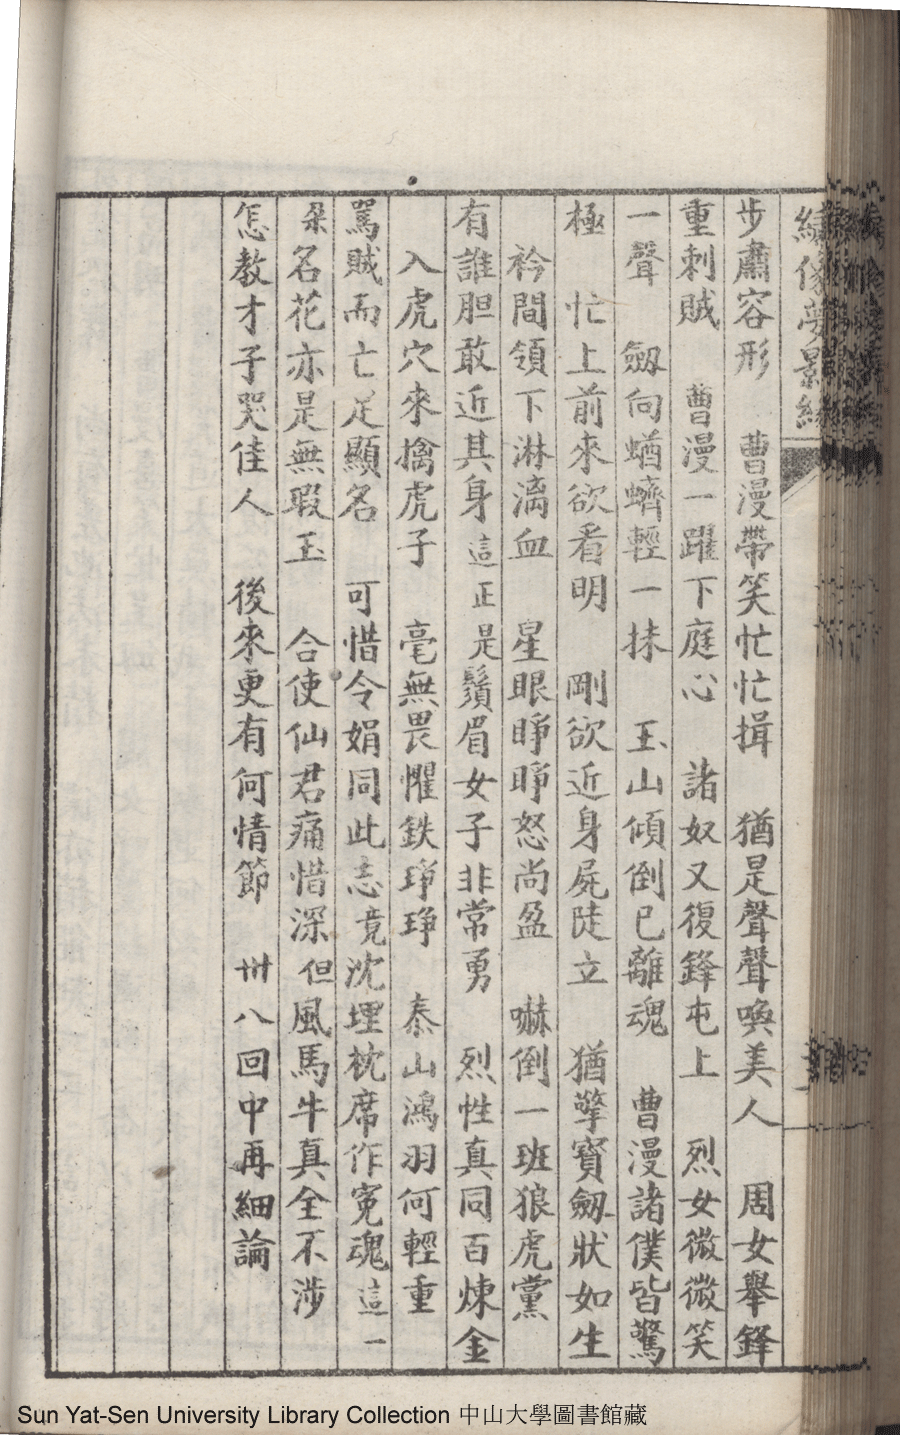 繡像夢影緣
步肅容形　曹漫帶笑忙忙揖　猶是聲聲喚美人　周女舉鋒
重刺賊　曹漫一躍下庭心　諸奴又復鋒屯上　烈女微微笑
一聲　劔向蝤蠐輕一抹　玉山傾倒已離魂　曹漫諸僕皆驚
極　忙上前來欲看明　剛欲近身屍陡立　猶擎寳劔狀如生
衿間領下淋漓血　星眼睜睜怒尚盈　嚇倒一班狼虎黨
有誰胆敢近其身這正是鬚眉女子非常勇　烈性真同百煉金
入虎穴來擒虎子　毫無畏懼鉄琤琤　泰山鴻羽何輕重
罵賊而亡足顯名　可惜令娟同此志竟沈埋枕席作寃魂這一
朵名花亦是無瑕玉　合使仙君痛惜深但風馬牛真全不涉
怎教才子哭佳人　後來更有何情節　卌八回中再細論
Sun Yat-Sen University Library Collection 中山大學圖書館藏